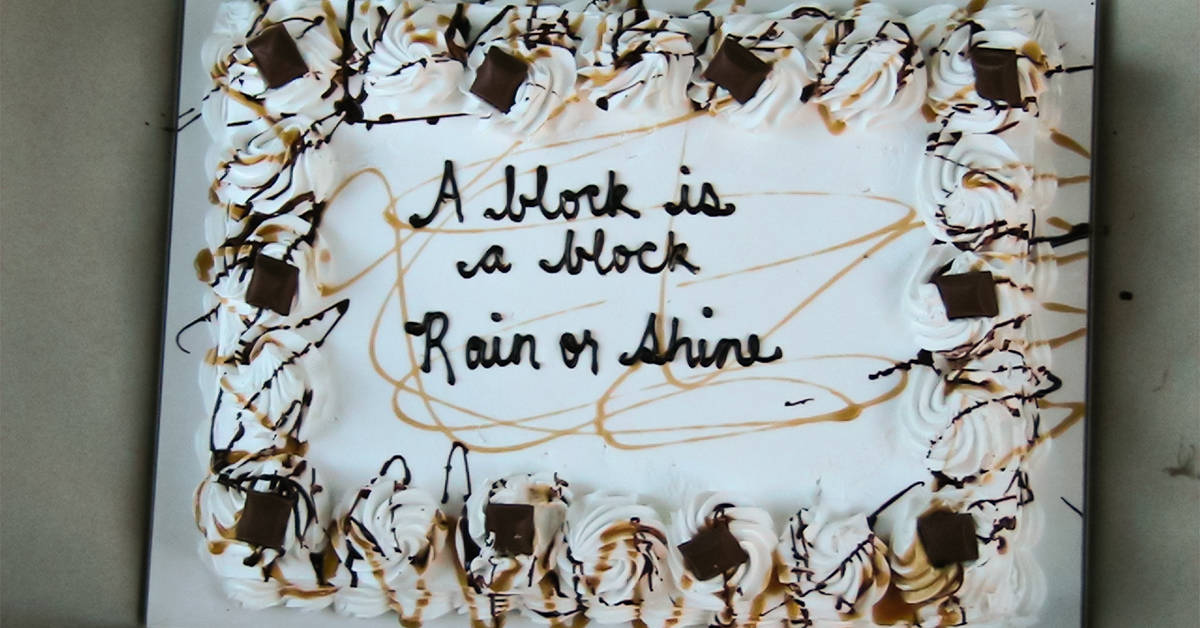 A block is
a block
Rain or Shine